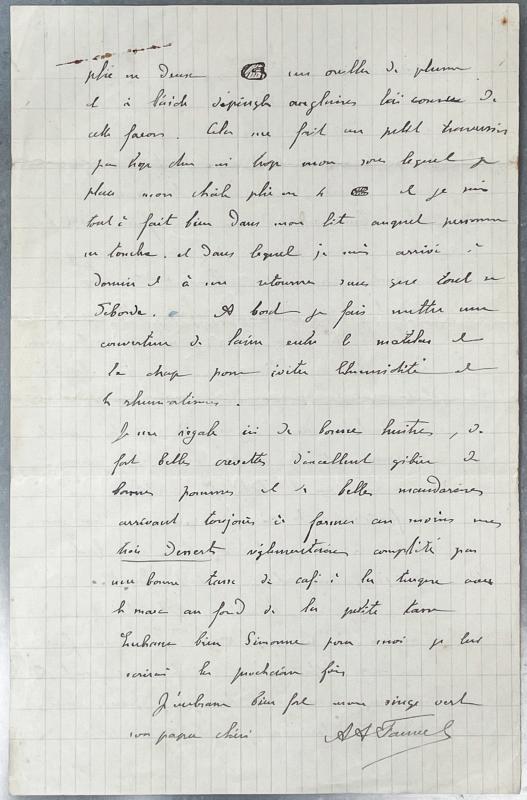 plié en deux un oreiller de plume
et à l'aide d'épingles anglaises l'ai cousue de
cette façon. Cela me fait un petit traversin
pas trop dur ni trop mou sous lequel je
place mon châle plié en 4 et je suis
tout à fait bien dans mon lit auquel personne
ne touche. et dans lequel je suis arrivé à
dormir et à me retourner sans que tout se
déborde. A bord je fais mettre une
couverture de laine entre le matelas et
le drap pour éviter l'humidité et
les rhumatismes.
Je me régale ici de bonnes huitres, de
fort belles crevettes d'excellent gibier de
bonnes pommes et de belles mandarines
arrivant toujours à former au moins mes
trois desserts réglementaires complété par
une bonne tasse de café à la turque avec
le marc au fond de la petite tasse
Embrasse bien Simonne pour moi je lui
écrirai la prochaine fois
J'embrasse bien fort mon singe vert
son papa chéri